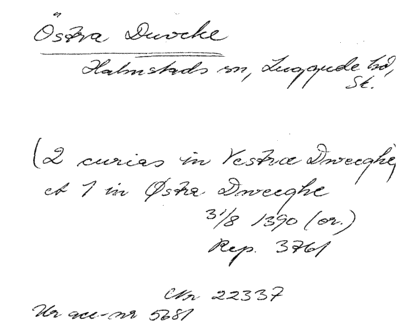 Östra Duvcke
Halmstads sn, Luggude hd,
Sk.
(2 curias in Vestræ Dweeghe
et 1 in Østra Dweeghe
31/8 1390 (or.)
Rep. 3761
Cnr 22337
Ur acc-nr 5681